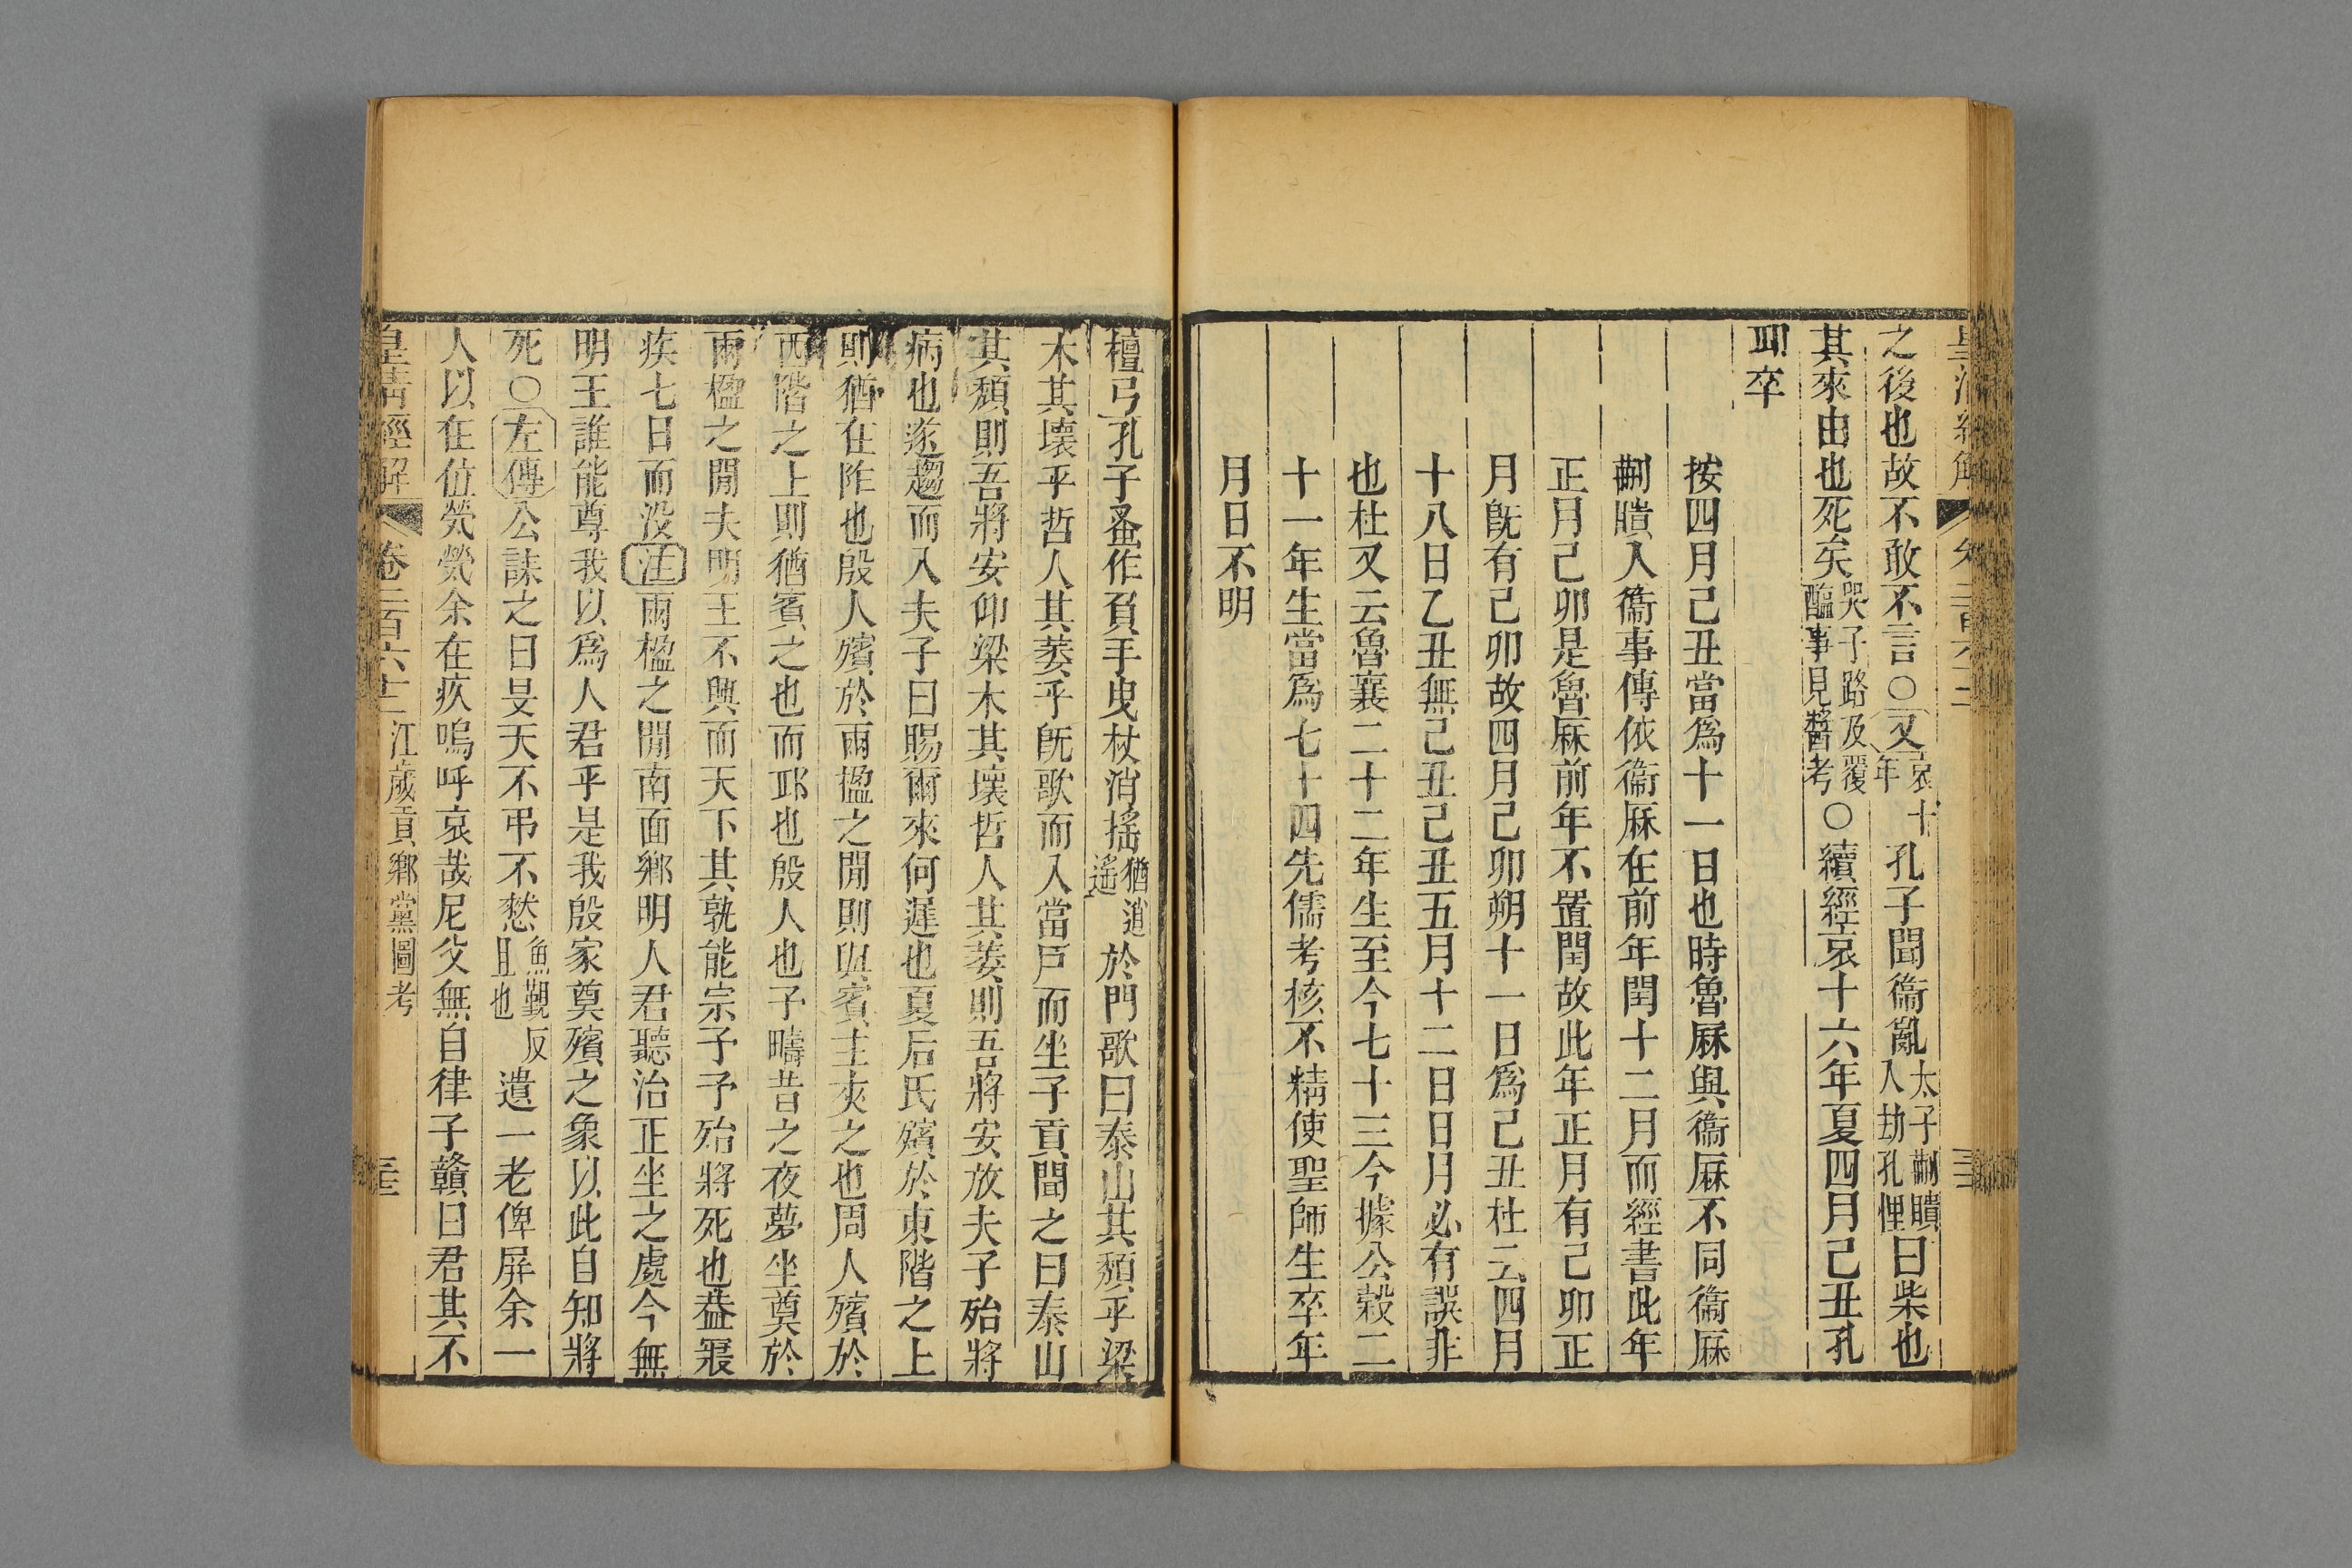 之後也故不敢不言○又哀十年孔子聞衞亂太子蒯聵入劫孔悝曰柴也
其來由也死矣哭子路及覆醢事見醬考○續經哀十六年夏四月己丑孔
丘卒
按四月己丑當爲十一日也時魯厤與衞厤不同衞厤
蒯聵入衞事傳依衞厤在前年閏十二月而經書此年
正月己卯是魯厤前年不置閏故此年正月有己卯正
月旣有己卯故四月己卯朔十一日爲己丑杜云四月
十八日乙丑無己丑己丑五月十二日日月必有誤非
也杜又云魯襄二十二年生至今七十三今據公穀二
十一年生當爲七十四先儒考核不精使聖師生卒年
月日不明
檀弓孔子蚤作負手曳杖消搖猶逍遙於門歌曰泰山其頹乎梁
木其壞乎哲人其萎乎旣歌而入當戶而坐子貢聞之曰泰山
其頹則吾將安仰梁木其壞哲人其萎則吾將安放夫子殆將
病也遂趨而入夫子曰賜爾來何遲也夏后氏殯於東階之上
則猶在阼也殷人殯於兩楹之閒則與賓主夾之也周人殯於
西階之上則猶賓之也而丘也殷人也予疇昔之夜夢坐奠於
兩楹之閒夫明王不興而天下其孰能宗予予殆將死也蓋寢
疾七日而没注兩楹之閒南面鄕明人君聽治正坐之處今無
明王誰能尊我以爲人君乎是我殷家奠殯之象以此自知將
死○左傳公誄之曰旻天不弔不憖魚覲反且也遺一老俾屏余一
人以在位煢煢余在疚嗚呼哀哉尼父無自律子贛曰君其不
皇淸經解 卷二百六十二 江歲貢鄕黨圖考